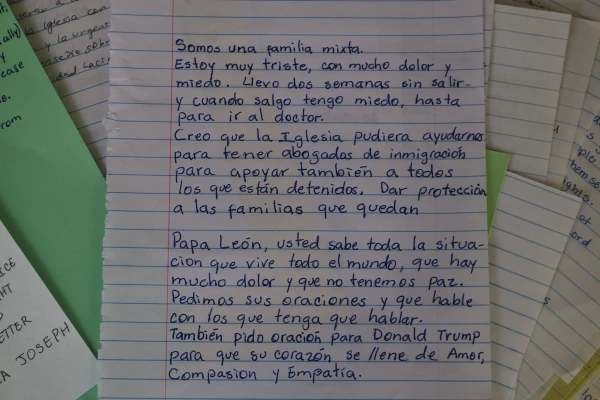 Somos una familia mixta.
Estoy muy triste, con mucho dolor y
miedo. Llevo dos semanas sin salir
y cuando salgo tengo miedo, hasta
para ir al doctor.
Creo que la Iglesia pudiera ayudarnos
para tener abogados de inmigración
para apoyar también a todos
los que están detenidos. Dar protección
a las familias que quedan
Papa León, usted sabe toda la situa-
cion que vive todo el mundo, que hay
mucho dolor y que no tenemos paz.
Pedimos sus oraciones y que hable
con los que tenga que hablar.
También pido oración para Donald Trump
para que su corazón se llene de Amor,
Compasion y Empatía.
Iglesia con
y la urgen
ease
rom
ICE
HT
ETTER
A JOSEPH
ights.
at
ord